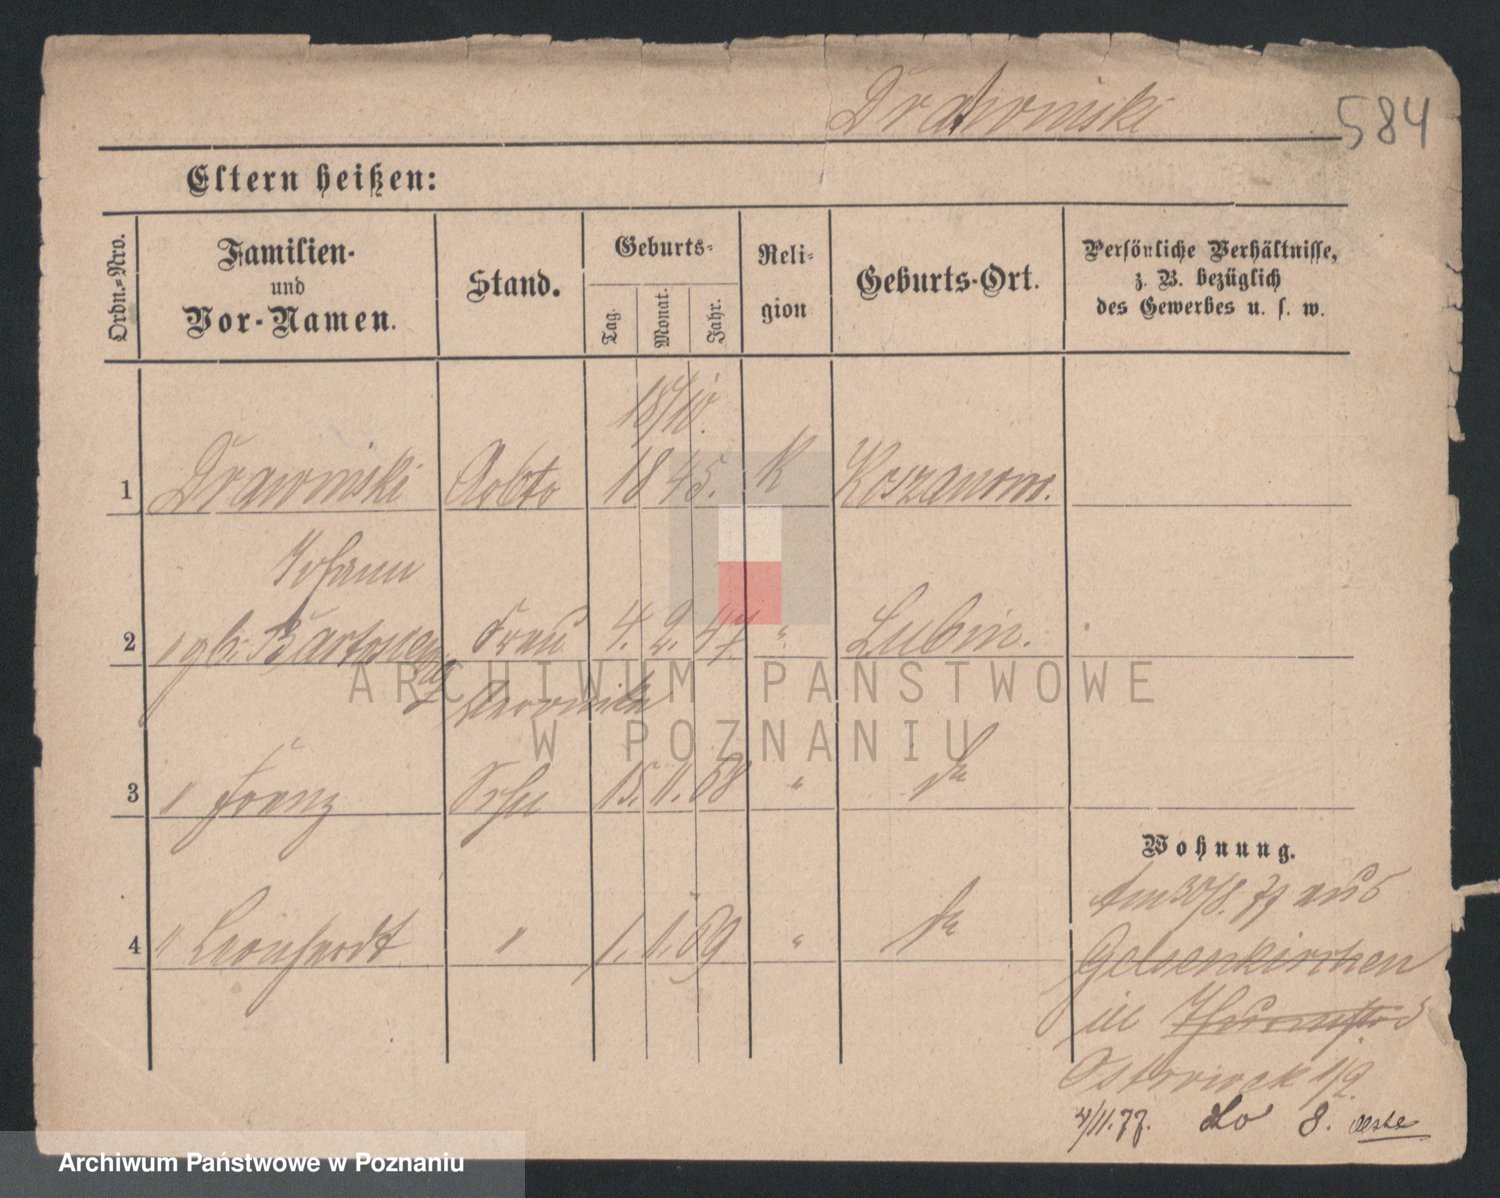 Drawinski 584
Eltern heißen:
Ordn.-Nro.
Familien-
und
Vor-Namen.
Stand.
Geburts-
Tag. Monat. Jahr.
Reli-
gion
Geburts-Ort.
Persönliche Verhältnisse,
z. B. bezüglich
des Gewerbes u. s. w.
18/10.
1 Drawinski 1845. K
Johann
2 " gb. Frau 4. 2. 47 " Lubin.
Veronika
3 " Franz Sohn 15. 11. 68 " do
4 " Leonhardt " 1. 11. 69 " do
Wohnung.
Am 30/8. 77 aus
Gelsenkirchen
in
Ostrowek 1/2
4/11.77. do 8.
ARCHIWUM PAŃSTWOWE
W POZNANIU
Archiwum Państwowe w Poznaniu